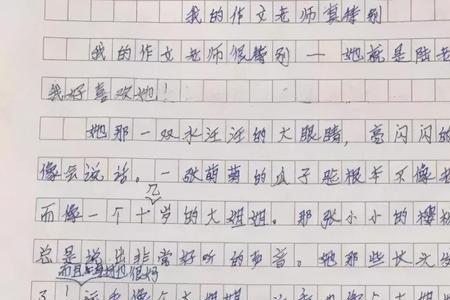 我的作文老师真特别
我的作文老师很特别——她就是陆老
我好喜欢她！
她那一双水汪汪的大眼睛，亮闪闪的
像会说话。一张萌萌的瓜子脸根本不像
乙
而像一个十岁的大姐姐。那张小小的樱桃
总是说出非常好听的声音。她那些长头发
而且 很好
了！ 像个大姐姐